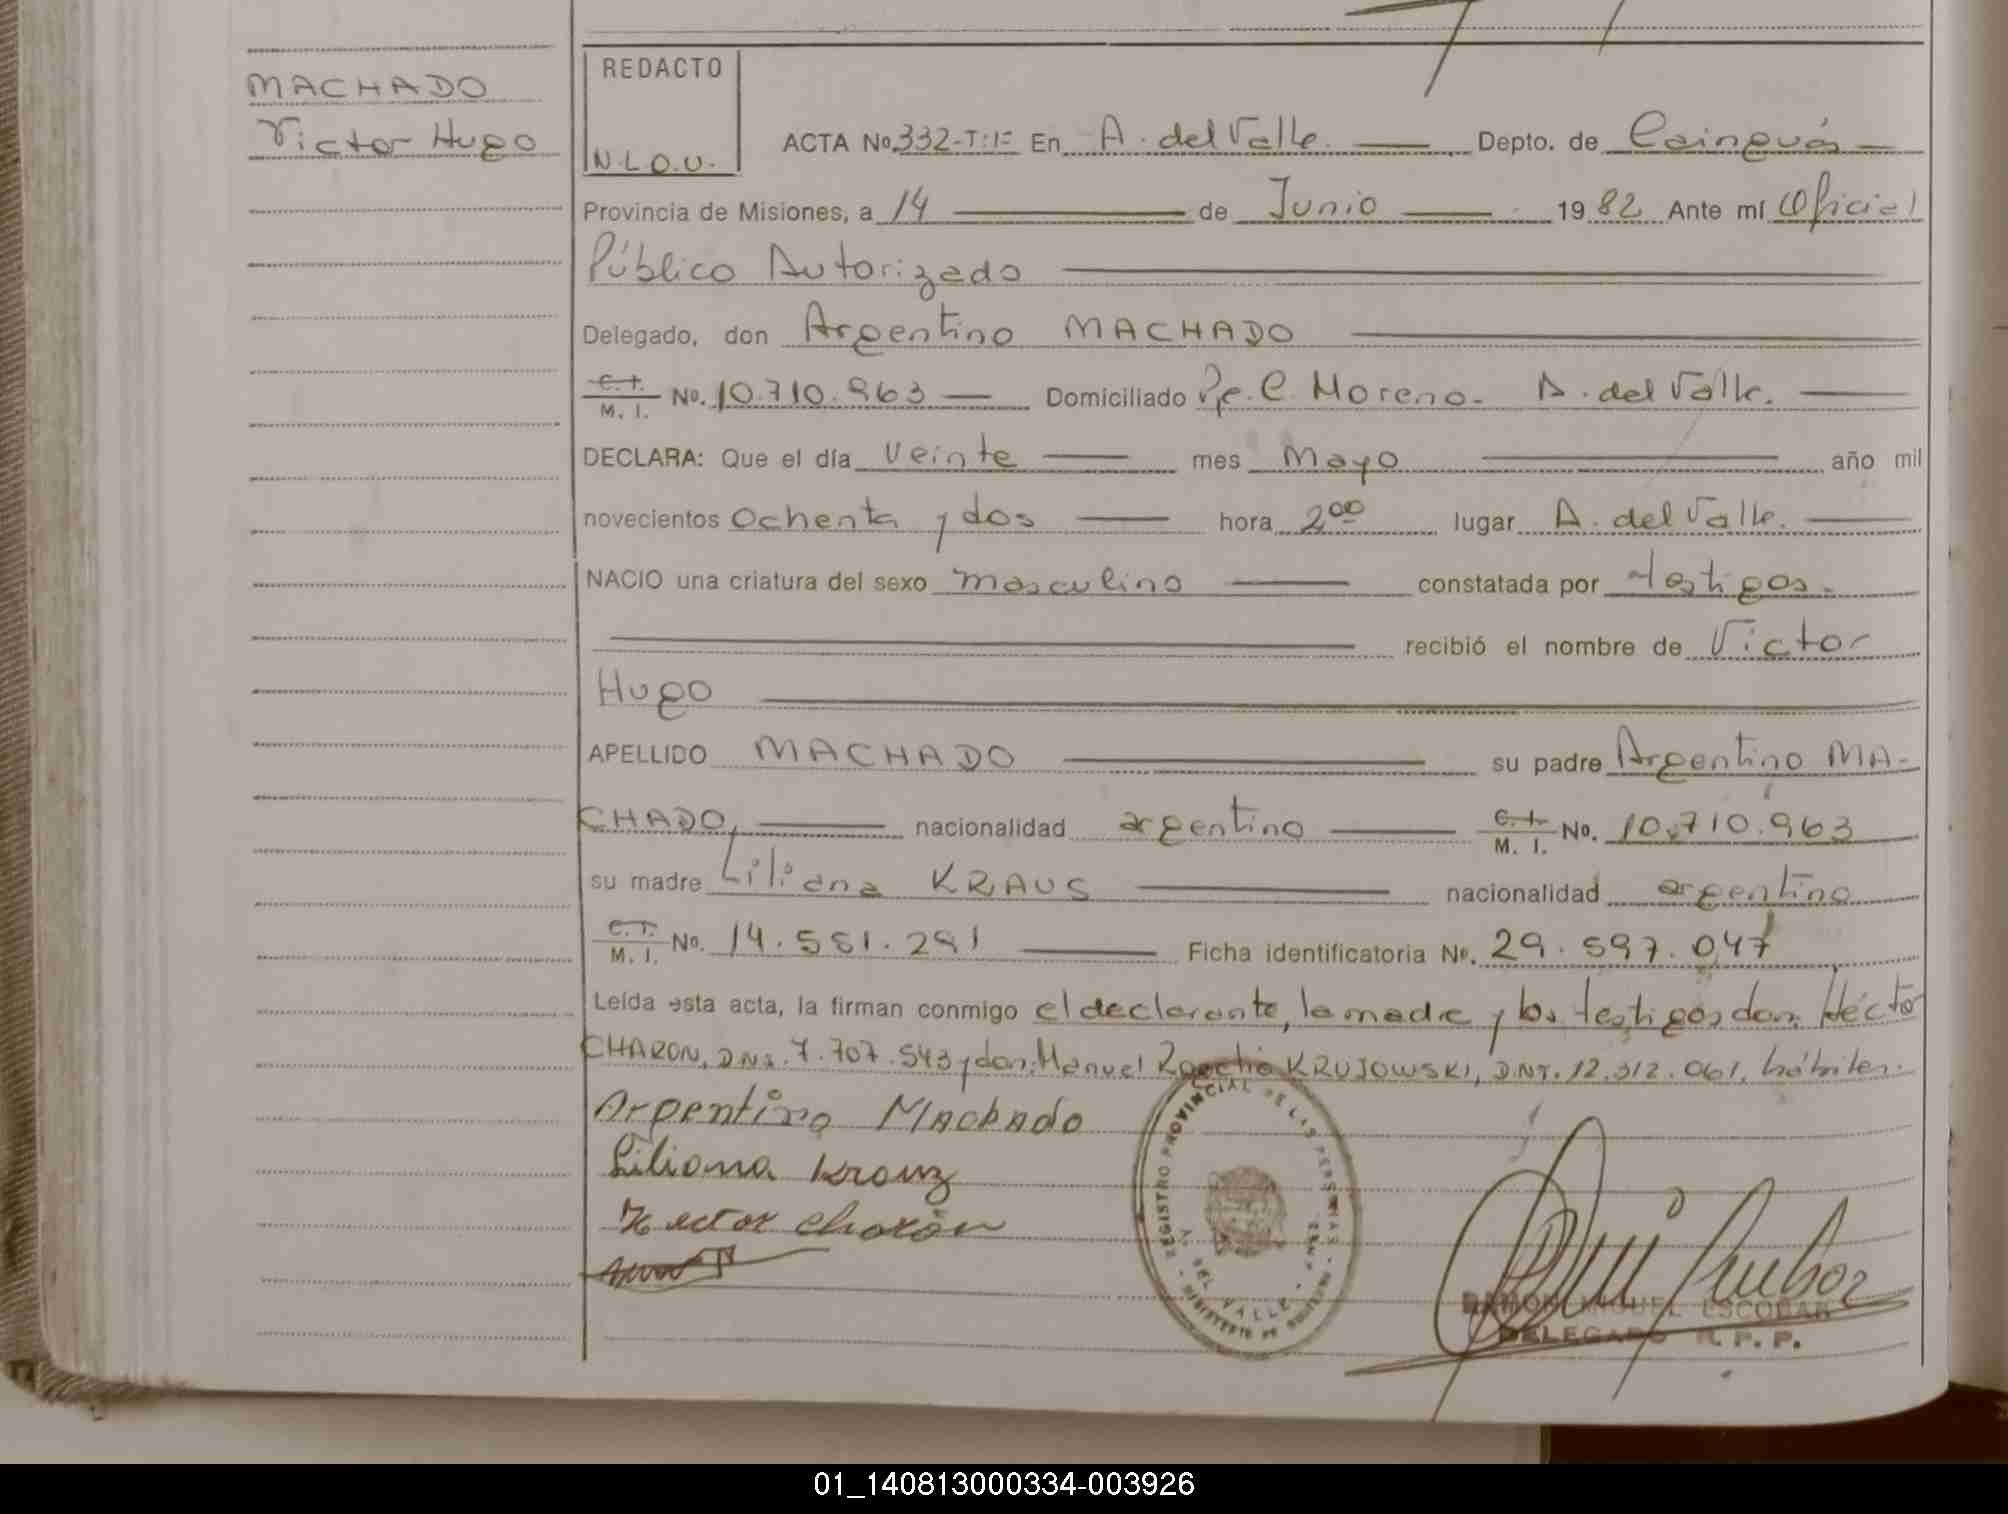 MACHADO
Victor Hugo
REDACTO
N.L.O.U.
ACTA No. 332-T:1= En A. del Valle. Depto. de Cainguás
Provincia de Misiones, a 14 de Junio 1982 Ante mí Oficial
Público Autorizado
Delegado, don Argentino MACHADO
C.I. M. I. No. 10.710.963 Domiciliado Pje. C. Moreno. A. del Valle.
DECLARA: Que el día veinte mes Mayo año mil
novecientos ochenta y dos hora 2 00 lugar A. del Valle.
NACIO una criatura del sexo masculino constatada por testigos.
recibió el nombre de Victor
Hugo
APELLIDO MACHADO su padre Argentino MA-
CHADO, nacionalidad argentino C.I. M. I. No. 10.710.963
su madre Liliana KRAUS nacionalidad argentina
C.I. M. I. No. 14.551.291 Ficha identificatoria No. 29.597.047
Leída esta acta, la firman conmigo el declarante, la madre y los testigos don: Héctor
CHARON, DNI. 7.707.543 y don: Manuel KRUJOWSKI, DNI. 12.312.061, hábiles.
Argentino Machado
Liliana Krauz
Hector Charón
REGISTRO PROVINCIAL DE LAS PERSONAS
A. DEL VALLE
MINISTERIO DE GOBIERNO
RAMON MIGUEL ESCOBAR
DELEGADO R. P. P.
01_140813000334-003926